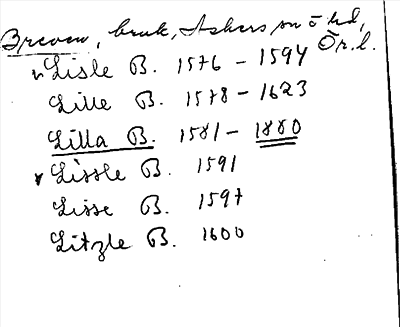 Breven, bruk, Askers sn ö hd,
Ör.l.
v Lisle B. 1576 - 1594
Lille B. 1578 - 1623
Lilla B. 1581 - 1880
v Lissle B. 1591
Lisse B. 1597
Litzle B. 1600